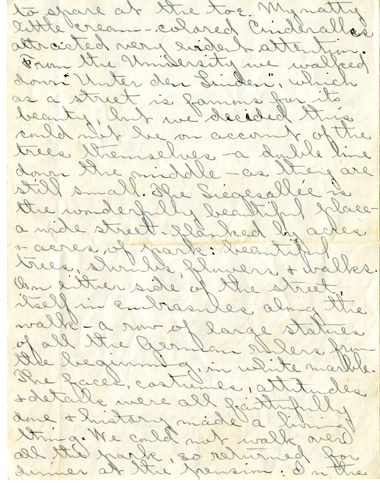 to spare at the toe. My natty
little cream-colored Cinderallas
attracted very evident attention.
From the University we walked
down "Unter den Linden", which
as a street is famous for its
beauty, but we decided this
could not be on account of the
trees themselves - a double line
down the middle - as they are
still small. The Siegesallée is
the wonderfully beautiful place -
a wide street flanked by acres
+ acres of park: beautiful
trees, shrubs, flowers + walks.
On either side of the street
itself in embrasures along the
walk - a row of large statues
of all the German rulers from
the beginning, in white marble.
The faces, costumes, attitudes
+ details were all faithfully
done + history made a living
thing. We could not walk over
all the park, so returned for
dinner at the pension. In the